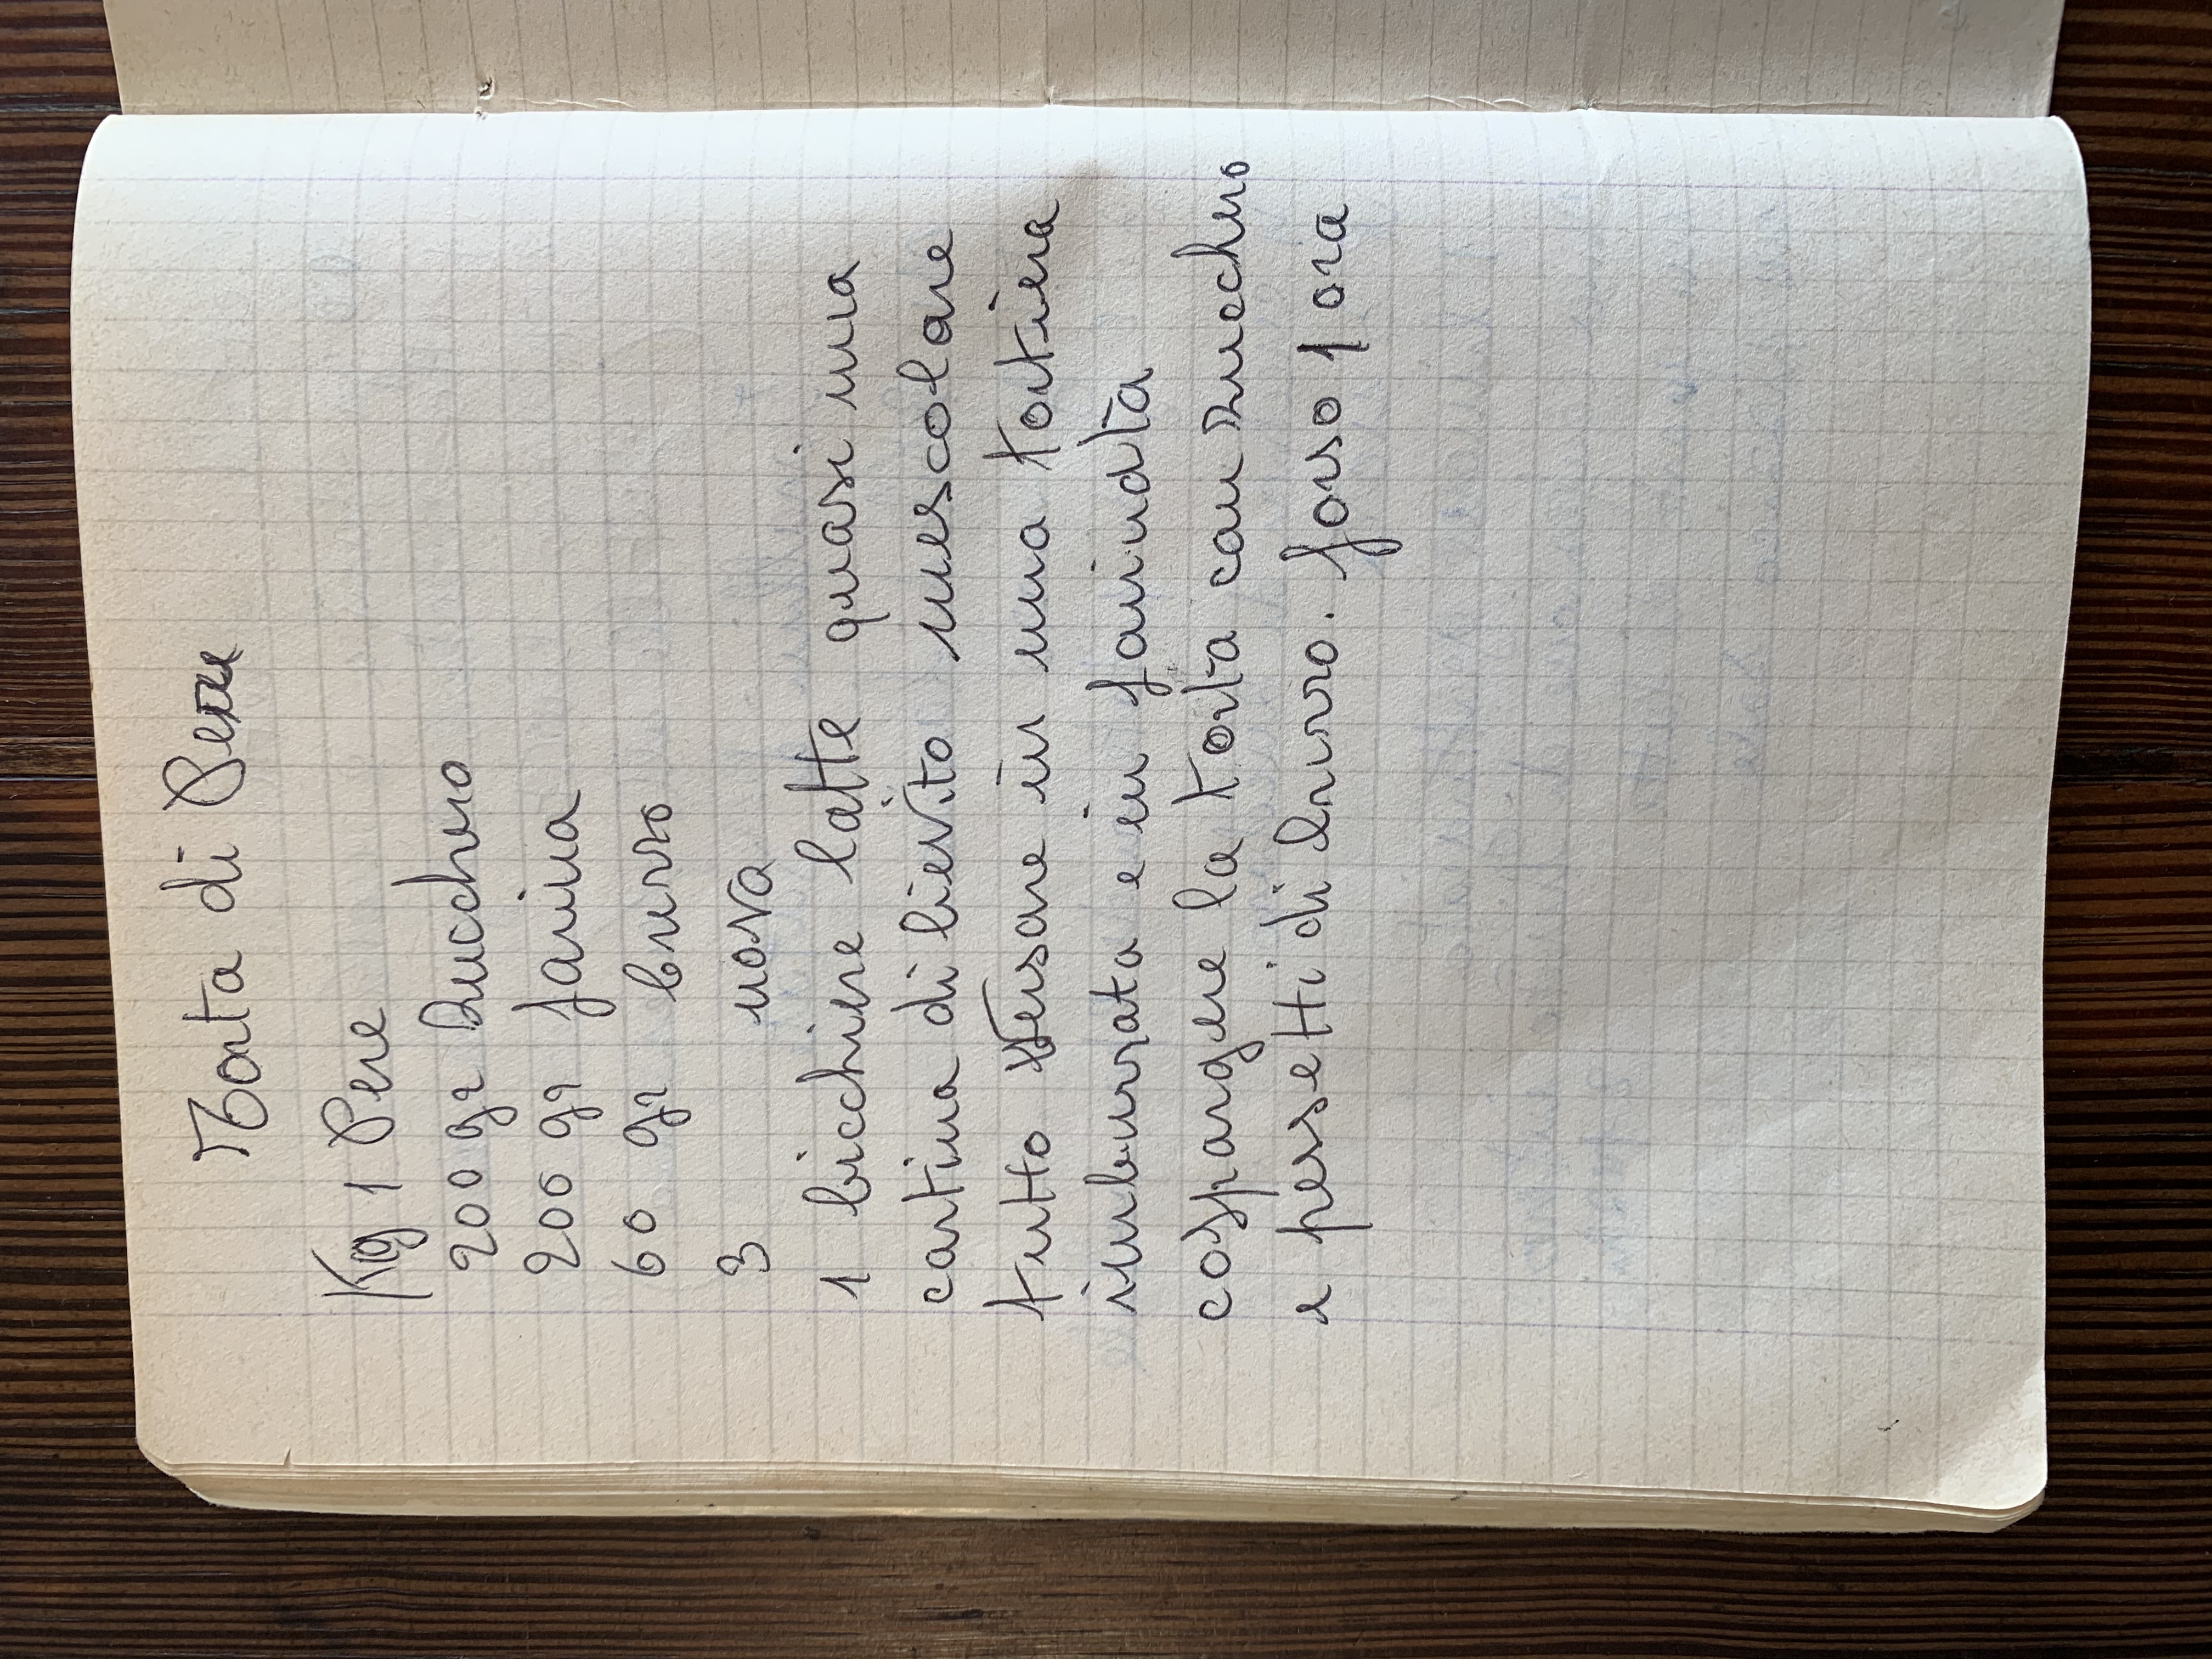 Torta di Pere
Kg 1 Pere
200 gr Zucchero
200 gr farina
60 gr burro
3 uova
1 bicchiere latte quasi una
cartina di lievito mescolare
tutto versare in una tortiera
imburrata e in farinata
cospargere la torta con zucchero
e pessetti di burro. forso 1 ora